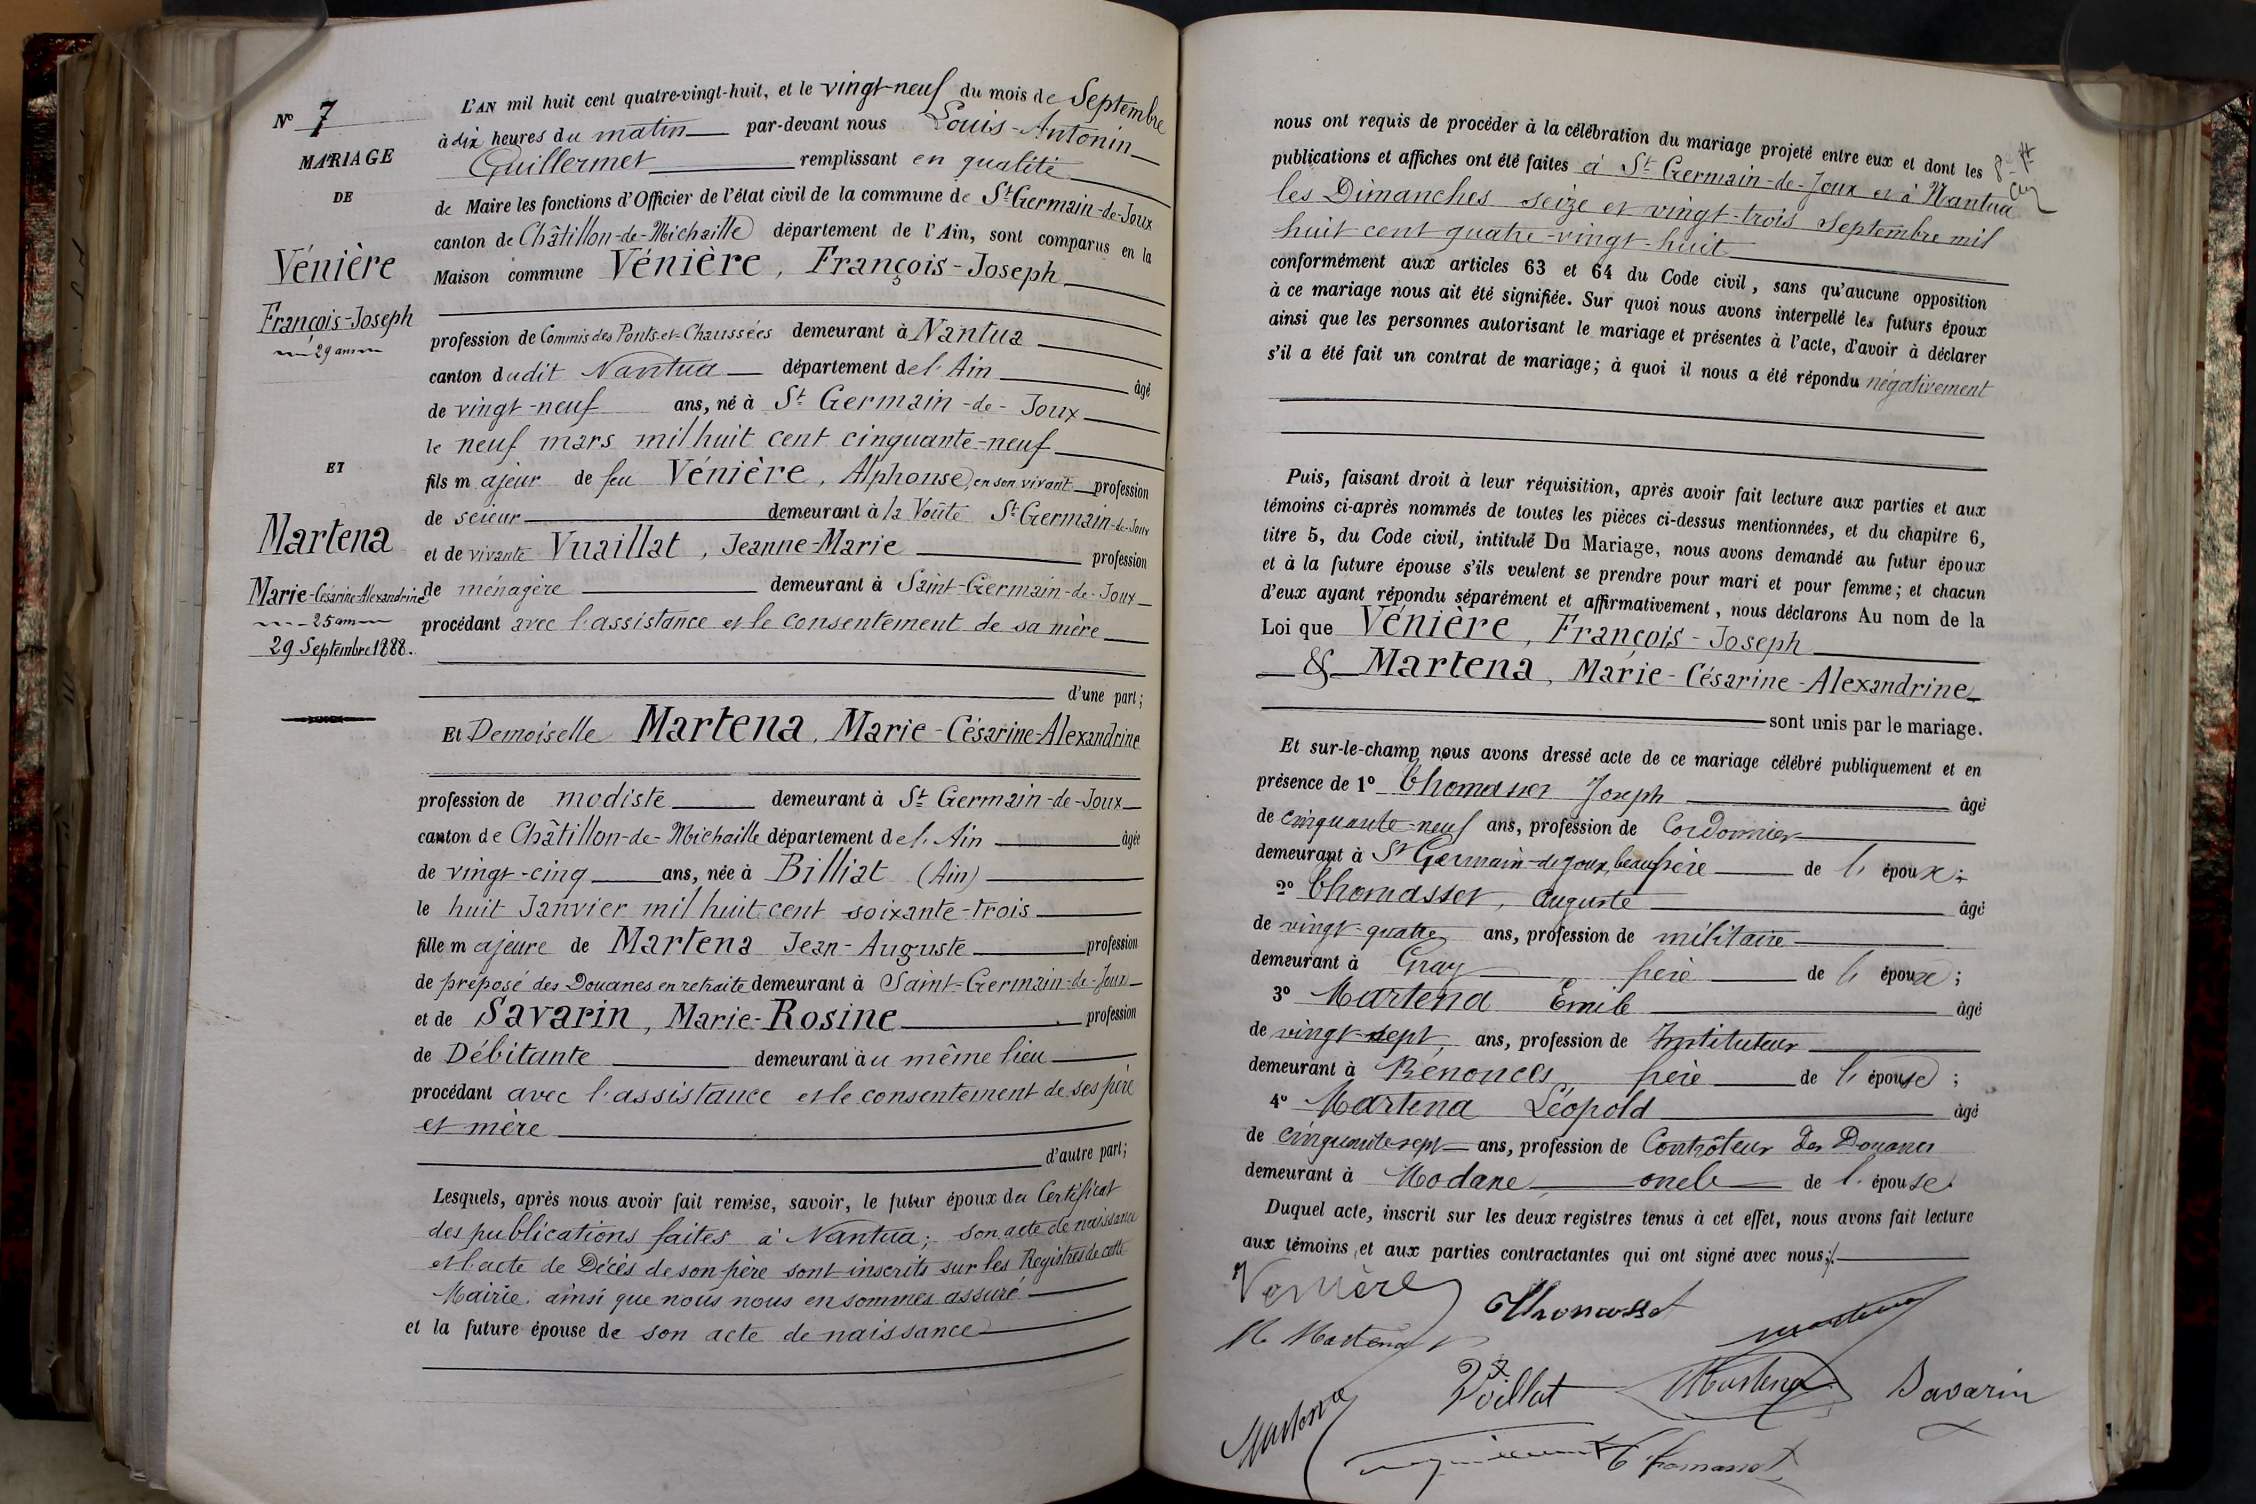 N° 7
MARIAGE
DE
Vénière
François-Joseph
29 ans
ET
Martena
Marie-Césarine-Alexandrine
25 ans
29 Septembre 1888.
L'AN mil huit cent quatre-vingt-huit, et le vingt-neuf du mois de Septembre
à dix heures du matin par-devant nous Louis-Antonin
Guillermet remplissant en qualité
de Maire les fonctions d'Officier de l'état civil de la commune de St Germain-de-Joux
canton de Châtillon-de-Michaille département de l'Ain, sont comparus en la
Maison commune Vénière, François-Joseph
profession de Commis des Ponts-et-Chaussées demeurant à Nantua
canton dudit Nantua département de l'Ain âgé
de vingt-neuf ans, né à St Germain-de-Joux
le neuf mars mil huit cent cinquante-neuf
fils majeur de feu Vénière, Alphonse, en son vivant profession
de scieur demeurant à la Voûte St Germain-de-Joux
et de vivante Vuaillat, Jeanne-Marie profession
de ménagère demeurant à Saint-Germain-de-Joux
procédant avec l'assistance et le consentement de sa mère
d'une part;
Et Demoiselle Martena, Marie-Césarine-Alexandrine
profession de modiste demeurant à St Germain-de-Joux
canton de Châtillon-de-Michaille département de l'Ain âgée
de vingt-cinq ans, née à Billiat (Ain)
le huit Janvier mil huit cent soixante-trois
fille majeure de Martena Jean-Auguste profession
de préposé des Douanes en retraite demeurant à Saint-Germain-de-Joux
et de Savarin, Marie-Rosine profession
de Débitante demeurant au même lieu
procédant avec l'assistance et le consentement de ses père
et mère
d'autre part;
Lesquels, après nous avoir fait remise, savoir, le futur époux du Certificat
des publications faites à Nantua; son acte de naissance
et l'acte de Décès de son père sont inscrits sur les Registres de cette
Mairie ainsi que nous nous en sommes assuré
et la future épouse de son acte de naissance
nous ont requis de procéder à la célébration du mariage projeté entre eux et dont les
publications et affiches ont été faites à St Germain-de-Joux et à Nantua
les Dimanches seize et vingt-trois Septembre mil
huit cent quatre-vingt-huit
conformément aux articles 63 et 64 du Code civil, sans qu'aucune opposition
à ce mariage nous ait été signifiée. Sur quoi nous avons interpellé les futurs époux
ainsi que les personnes autorisant le mariage et présentes à l'acte, d'avoir à déclarer
s'il a été fait un contrat de mariage; à quoi il nous a été répondu négativement
Puis, faisant droit à leur réquisition, après avoir fait lecture aux parties et aux
témoins ci-après nommés de toutes les pièces ci-dessus mentionnées, et du chapitre 6,
titre 5, du Code civil, intitulé Du Mariage, nous avons demandé au futur époux
et à la future épouse s'ils veulent se prendre pour mari et pour femme; et chacun
d'eux ayant répondu séparément et affirmativement, nous déclarons Au nom de la
Loi que Vénière, François-Joseph
& Martena, Marie-Césarine-Alexandrine
sont unis par le mariage.
Et sur-le-champ nous avons dressé acte de ce mariage célébré publiquement et en
présence de 1° Thomasset Joseph âgé
de cinquante-neuf ans, profession de Cordonnier
demeurant à St Germain-de-Joux, beau frère de l'époux;
2° Thomasset, Auguste âgé
de vingt-quatre ans, profession de militaire
demeurant à Gray de l'époux;
3° Martena Emile âgé
de vingt-sept, ans, profession de Instituteur
demeurant à Bénonces frère de l'épouse;
4° Martena Léopold âgé
de cinquante sept ans, profession de Contrôleur des Douanes
demeurant à Modane oncle de l'épouse
Duquel acte, inscrit sur les deux registres tenus à cet effet, nous avons fait lecture
aux témoins et aux parties contractantes qui ont signé avec nous.
Vénière
Thomasset
Martena
M Martena
Vuillat
Martena
Savarin
Martena
Thomasset